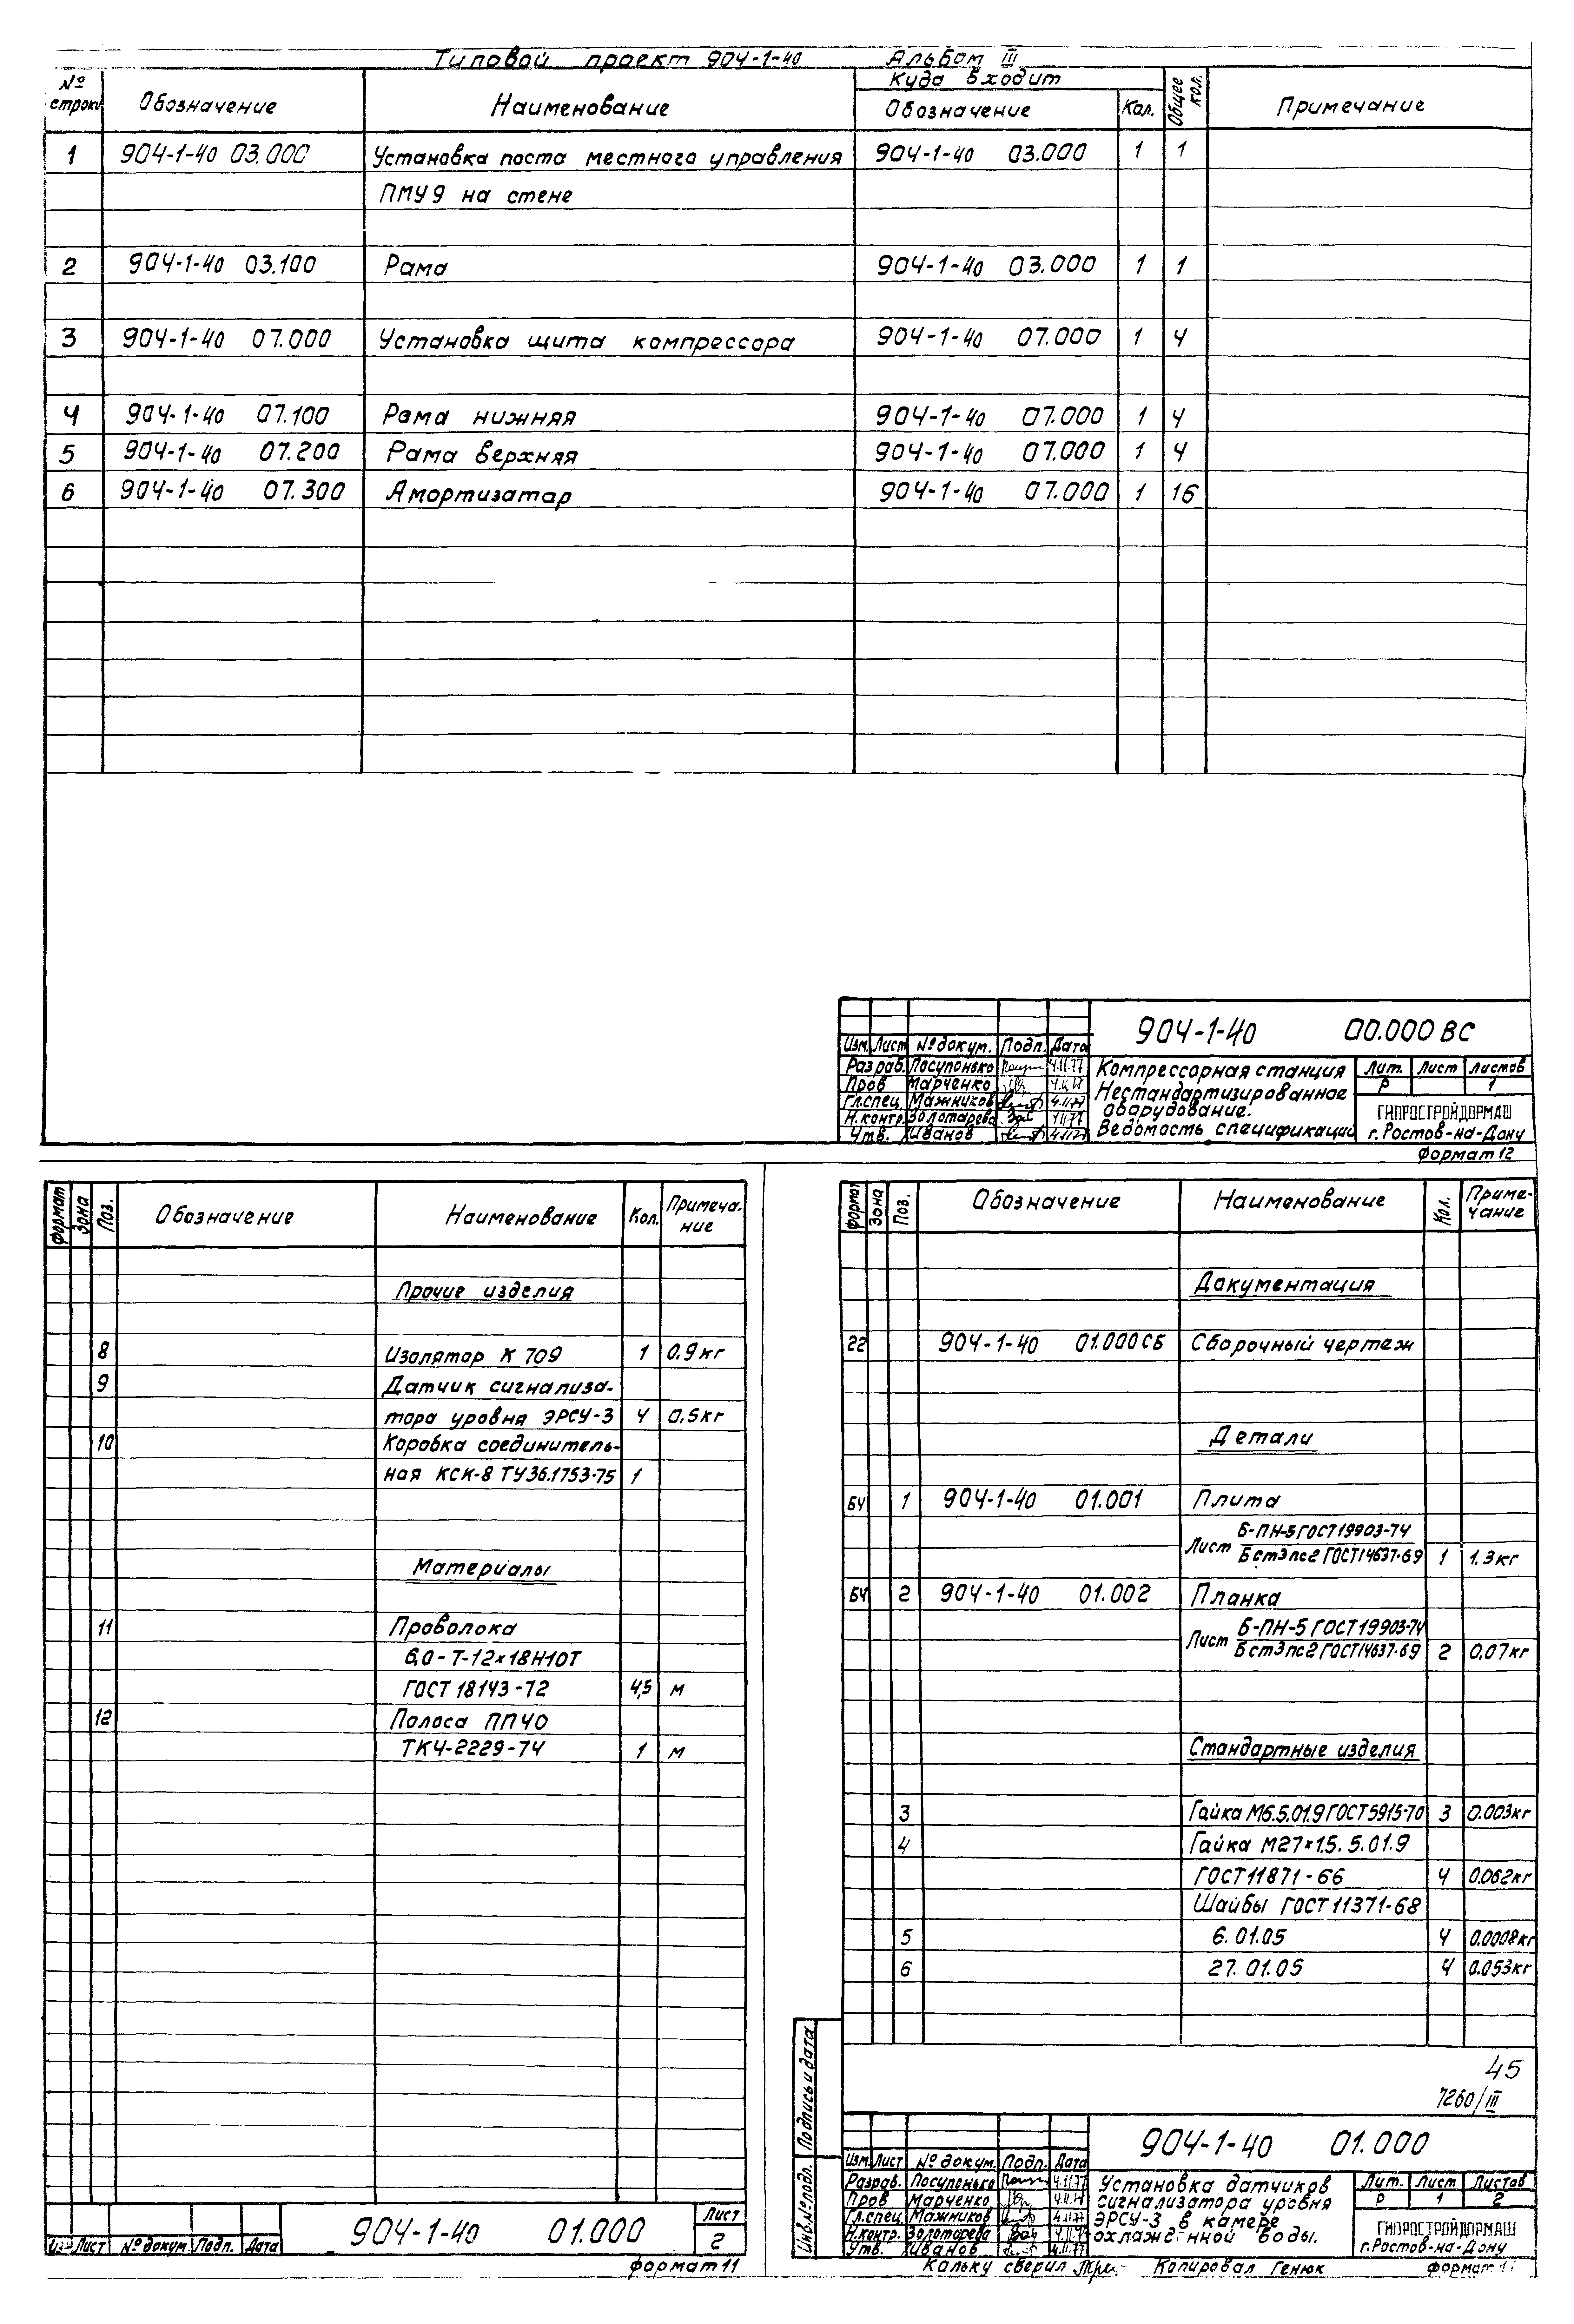 Типовой проект 904-1-40 Альбом III
№ строки Обозначение Наименование Куда входит Обозначение Кол. Общее кол. Примечание
1 904-1-40 03.000 Установка поста местного управления 904-1-40 03.000 1 1
ПМУ9 на стене
2 904-1-40 03.100 Рама 904-1-40 03.000 1 1
3 904-1-40 07.000 Установка щита компрессора 904-1-40 07.000 1 4
4 904-1-40 07.100 Рама нижняя 904-1-40 07.000 1 4
5 904-1-40 07.200 Рама верхняя 904-1-40 07.000 1 4
6 904-1-40 07.300 Амортизатор 904-1-40 07.000 1 16
904-1-40 00.000 ВС
Изм. Лист № докум. Подп. Дата
Разраб. Посупонько 4.11.77
Пров Марченко
Гл.спец. Мажников 4.11.77
Н.контр. Золотарева 4.11.77
Утв. Иванов 4.11.77
Компрессорная станция
Нестандартизированное
оборудование.
Ведомость спецификаций
Лит. Лист Листов
Р 1
ГИПРОСТРОЙДОРМАШ
г.Ростов-на-Дону
Формат 12
Формат Зона Поз. Обозначение Наименование Кол. Примечание
Прочие изделия
8 Изолятор К 709 1 0.9кг
9 Датчик сигнализа-
тора уровня ЭРСУ-3 4 0,5кг
10 Коробка соединитель-
ная КСК-8 ТУ36.1753-75 1
Материалы
11 Проволока
6,0-Т-12х18Н10Т
ГОСТ 18143-72 4,5 м
12 Полоса ПП40
ТК4-2229-74 1 м
Изм Лист № докум. Подп. Дата
904-1-40 01.000
Лист
2
Формат 11
Формат Зона Поз. Обозначение Наименование Кол. Приме-чание
Документация
22 904-1-40 01.000СБ Сборочный чертеж
Детали
БЧ 1 904-1-40 01.001 Плита
Лист Б-ПН-5 ГОСТ19903-74
Бст3пс2 ГОСТ14637-69 1 1.3кг
БЧ 2 904-1-40 01.002 Планка
Лист Б-ПН-5 ГОСТ19903-74
Бст3пс2 ГОСТ14637-69 2 0,07кг
Стандартные изделия
3 Гайка М6.5.01.9 ГОСТ5915-70 3 0.003кг
4 Гайка М27х1.5.5.01.9
ГОСТ11871-66 4 0.062кг
Шайбы ГОСТ 11371-68
5 6.01.05 4 0.0008кг
6 27.01.05 4 0.053кг
45
7260/III
Подпись и дата
Инв.№подл.
904-1-40 01.000
Изм. Лист № докум. Подп. Дата
Разраб. Посупонько 4.11.77
Пров Марченко
Гл.спец. Мажников 4.11.77
Н.контр. Золотарева 4.11.77
Утв. Иванов 4.11.77
Установка датчиков
сигнализатора уровня
ЭРСУ-3 в камере
охлажденной воды.
Лит. Лист Листов
Р 1 2
ГИПРОСТРОЙДОРМАШ
г.Ростов-на-Дону
Кальку сверил Копировал Генюк Формат 11